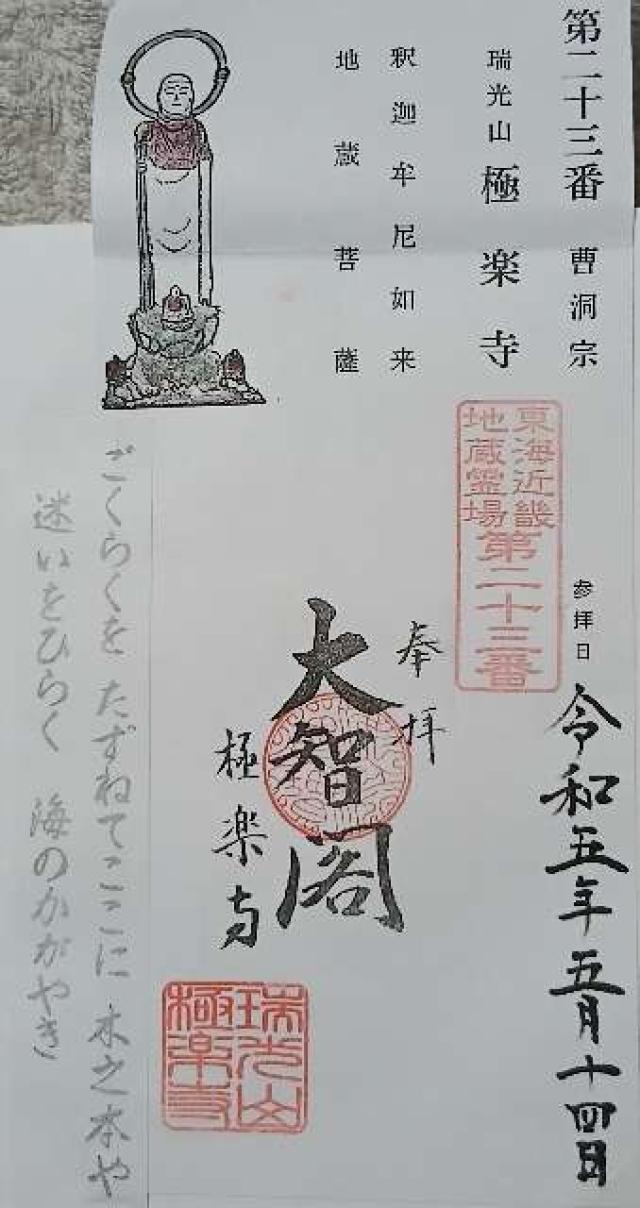 第二十三番 曹洞宗
瑞光山 極楽寺
釈迦牟尼如来
地蔵菩薩
東海近畿
地蔵霊場
第二十三番
参拝日 令和五年五月十四日
奉拝
大智閣
極楽寺
瑞光山
極楽寺
ごくらくを たずねてここに 木之本や
迷いをひらく 海のかがやき